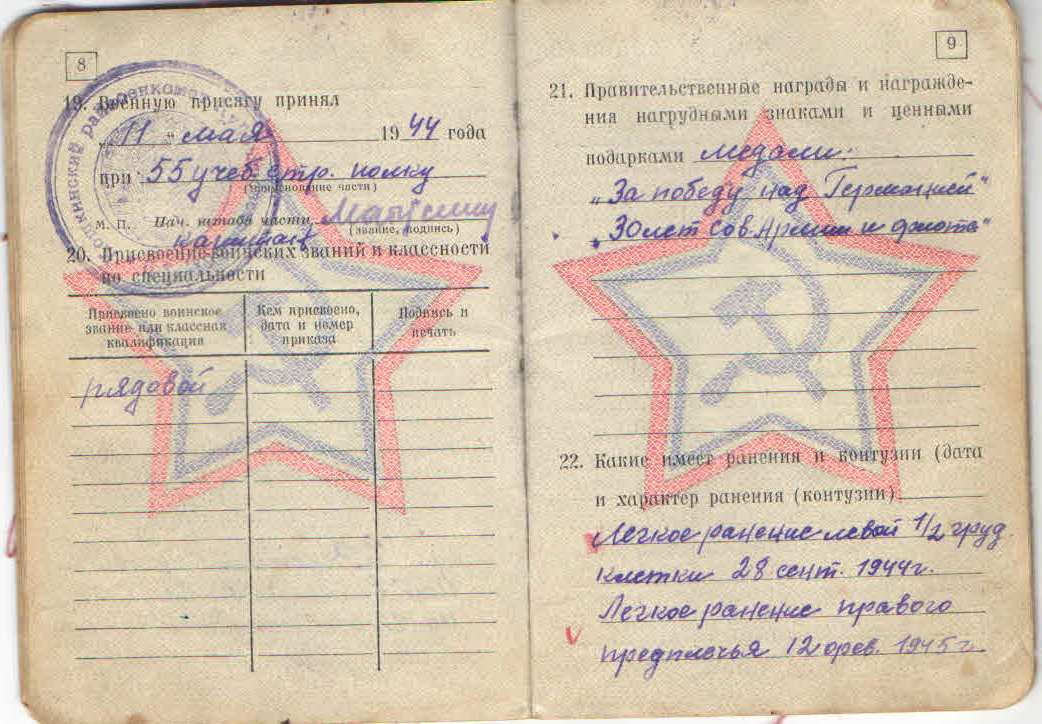 8
19. Военную присягу принял
„ 11 " мая 1944 года
при 55 учеб. стр. полку
(наименование части)
М. П. Нач. штаба части
(звание, подпись)
капитан
20. Присвоение воинских званий и классности
по специальности
Присвоено воинское звание или классная квалификация
Кем присвоено, дата и номер приказа
Подпись и печать
рядовой
9
21. Правительственные награды и награжде-
ния нагрудными знаками и ценными
подарками медали:
„За победу над Германией"
„30 лет Сов. Армии и флота"
22. Какие имеет ранения и контузии (дата
и характер ранения (контузии)
Легкое ранение левой 1/2 груд.
клетки 28 сент. 1944 г.
Легкое ранение правого
предплечья 12 фев. 1945 г.